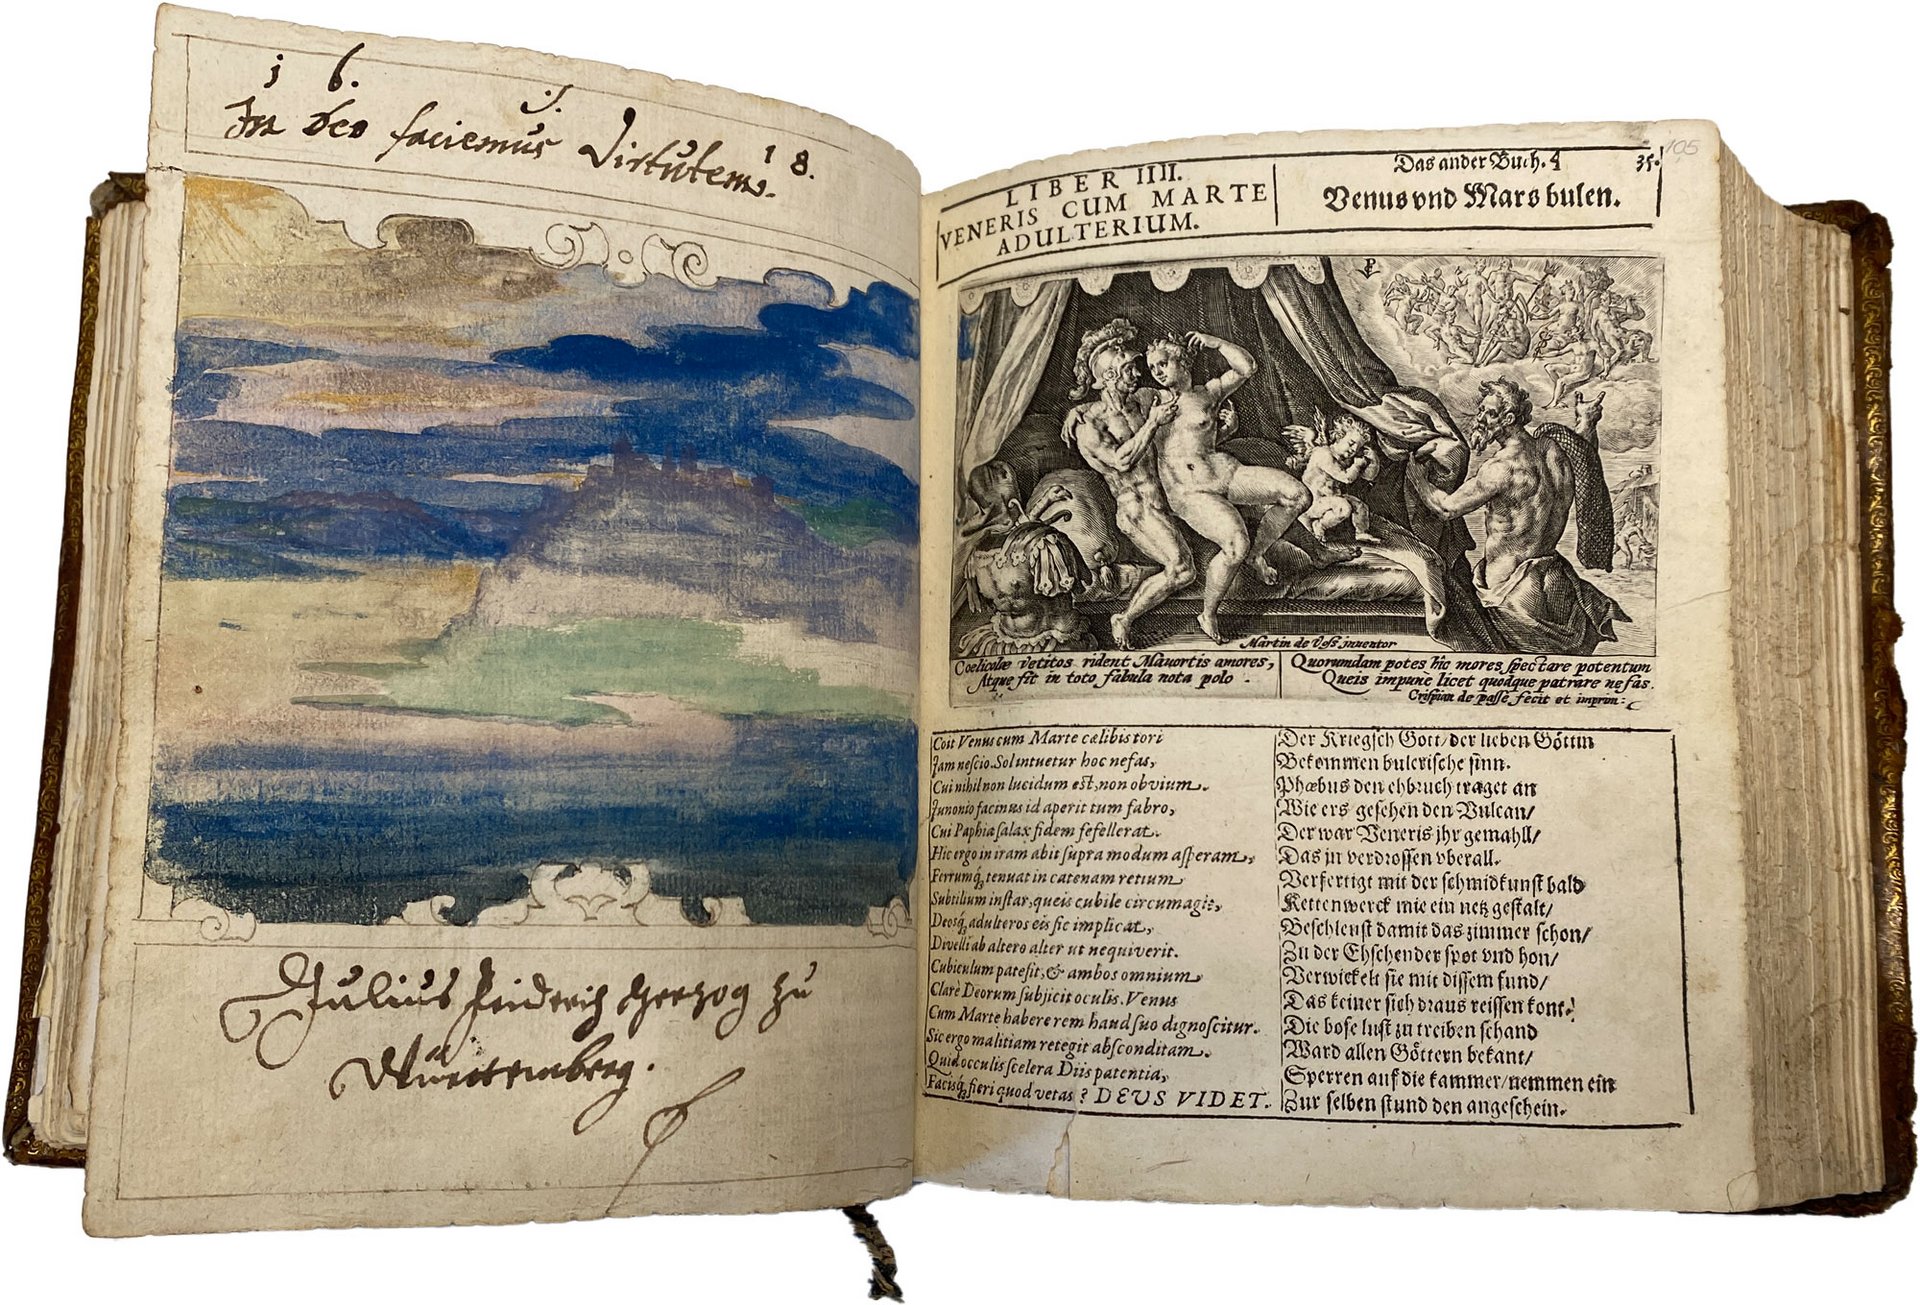 1 6.
J.
In deo faciemus Virtutem.
1 8.
Julius Friderich Hertzog zu
Württemberg.
105
LIBER IIII.
VENERIS CUM MARTE
ADULTERIUM.
Das ander Buch. 4
35.
Venus vnd Mars bulen.
Martin de Vos inventor
Coelicolæ vetitos rident Mavortis amores,
Atque fit in toto fabula nota polo.
Quorumdam potes hîc mores spectare potentum
Queis impune licet quodque patrare nefas.
Crispian de passe fecit et imprim:
Coit Venus cum Marte cælibis tori
Jam nescio. Sol intuetur hoc nefas,
Cui nihil non lucidum est, non obvium.
Junonio facinus id aperit tum fabro,
Cui Paphia salax fidem fefellerat.
Hic ergo in iram abit supra modum asperam,
Ferrumq́; tenuat in catenam retium
Subtilium instar, queis cubile circumagit,
Deosq́; adulteros eis sic implicat,
Divelli ab altero alter ut nequiverit.
Cubiculum patefit, & ambos omnium
Clarè Deorum subjicit oculis. Venus
Cum Marte habere rem haud suo dignoscitur.
Sic ergo malitiam retegit absconditam.
Quid occulis scelera Diis patentia,
Facisq́; fieri quod vetas? DEUS VIDET.
Der Kriegsch Gott/ der lieben Göttin
Bekommen bulerische sinn.
Phœbus den ehbruch traget an
Wie ers gesehen den Vulcan/
Der war Veneris jhr gemahll/
Das jn verdrossen vberall.
Verfertigt mit der schmidkunst bald
Kettenwerck wie ein netz gestalt/
Beschleust damit das zimmer schon/
Zu der Ehschender spot vnd hon/
Verwickelt sie mit dissem fund/
Das keiner sich draus reissen kont.
Die bose lust zu treiben schand
Ward allen Göttern bekant/
Sperren auf die kammer/ nemmen ein
Zur selben stund den angeschein.